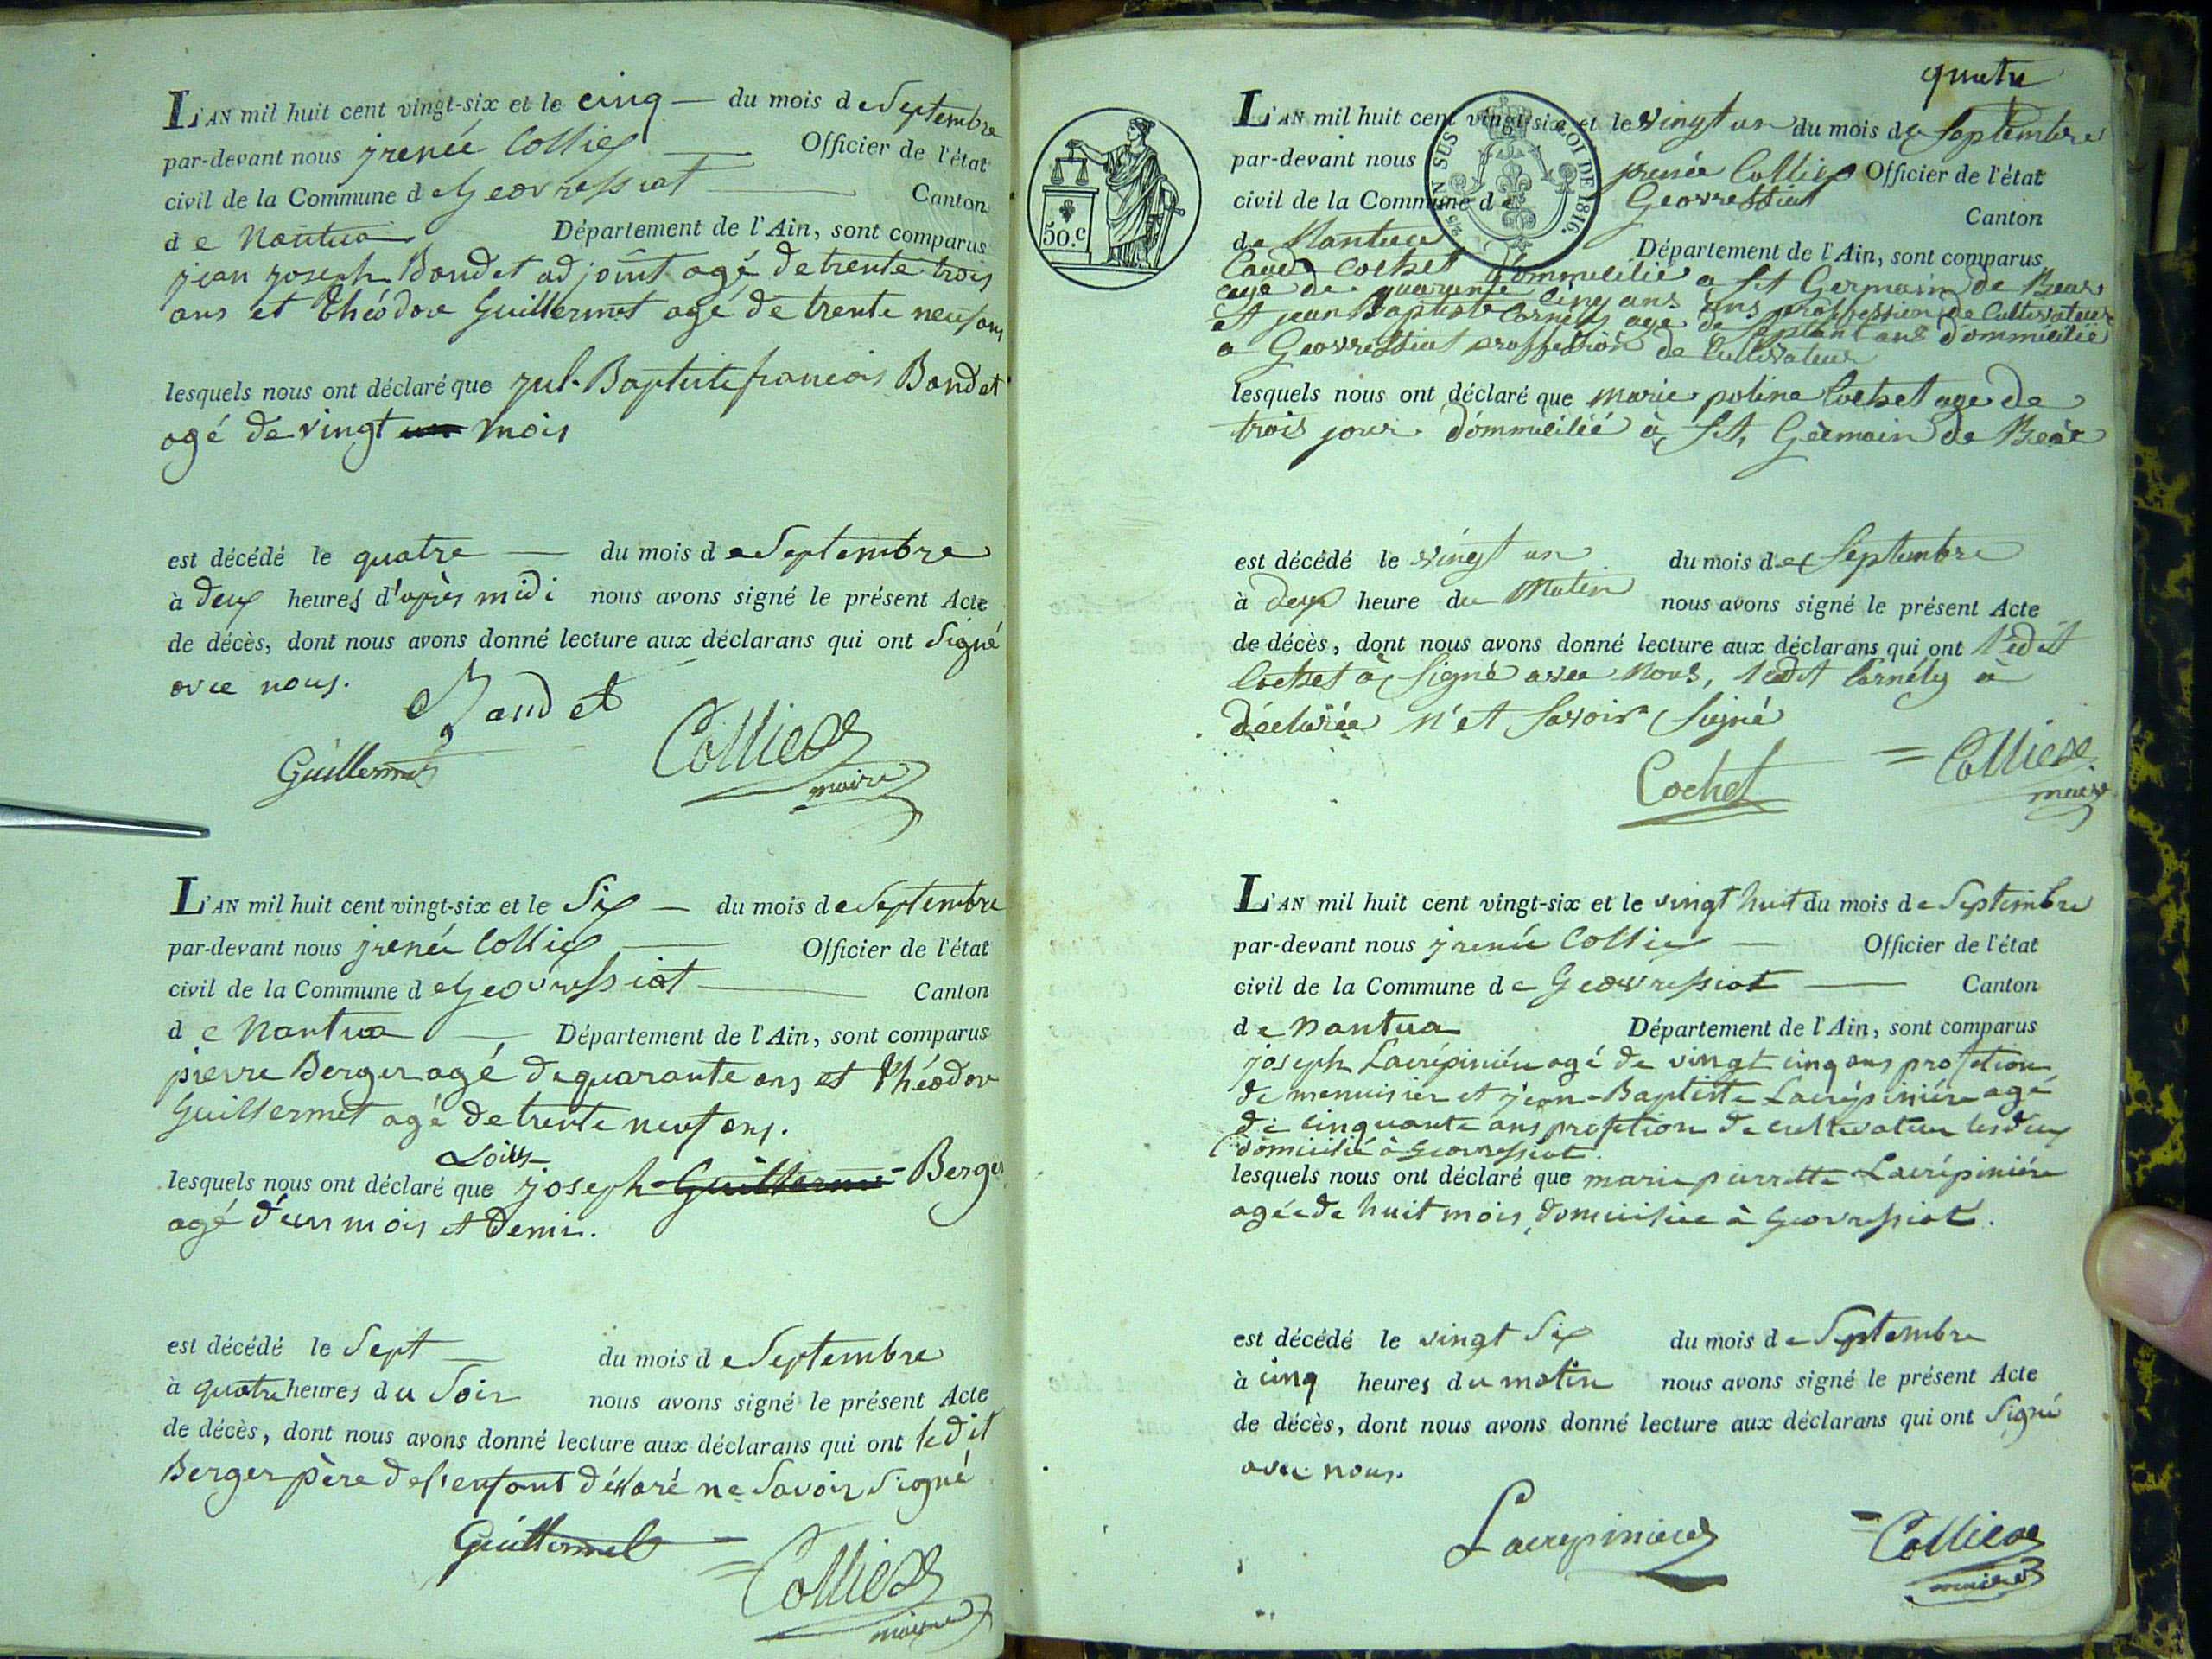 L'AN mil huit cent vingt-six et le cinq — du mois de Septembre
par-devant nous jrenée Colliex — Officier de l'état
civil de la Commune de Geovressiat — Canton
de Nantua Département de l'Ain, sont comparus
jean joseph Bandet adjoint agé de trente trois
ans et théodore Guillermet agé de trente neuf ans
lesquels nous ont déclaré que Jul. Baptiste francois Bandet
agé de vingt un mois
est décédé le quatre — du mois de Septembre
à deux heures d'après midi nous avons signé le présent Acte
de décès, dont nous avons donné lecture aux déclarans qui ont Signé
avec nous.
Bandet
Guillermet
Colliex
maire
L'AN mil huit cent vingt-six et le Six — du mois de Septembre
par-devant nous jrenée Colliex — Officier de l'état
civil de la Commune de Geovressiat — Canton
de Nantua — Département de l'Ain, sont comparus
pierre Berger agé de quarante ans et théodore
Guillermet agé de trente neuf ans.
Louis
lesquels nous ont déclaré que joseph Guillermet Berger
agé d'un mois et demi.
est décédé le Sept — du mois de Septembre
à quatre heures du Soir nous avons signé le présent Acte
de décès, dont nous avons donné lecture aux déclarans qui ont ledit
Berger père de l'enfant déclaré ne Savoir Signé
Guillermet
= Colliex
maire
quatre
50.c
EN SUS
LOI DE 1816.
L'AN mil huit cent vingt-six et le vingt un du mois de Septembre
par-devant nous jrenée Colliex Officier de l'état
civil de la Commune de Geovressiat Canton
de Nantua Département de l'Ain, sont comparus
Cochet dommicilié a St Germain de Bear
age de quarante cinq ans proffession de Cultivateur
et jean Baptiste Cornély age de septant ans dommicilié
a Geovressiat proffession de Cultivateur
lesquels nous ont déclaré que Marie poline Cochet age de
trois jour dommicilié à St, Germain de Bear
est décédé le vingt un du mois de Septembre
à deux heure du Matin nous avons signé le présent Acte
de décès, dont nous avons donné lecture aux déclarans qui ont ledit
Cochet à Signé avec nous, ledit Cornély à
déclarée n'et savoir signé
Cochet
= Colliex
maire
L'AN mil huit cent vingt-six et le vingt huit du mois de Septembre
par-devant nous jrenée Colliex — Officier de l'état
civil de la Commune de Geovressiat — Canton
de Nantua Département de l'Ain, sont comparus
joseph Lacrépinière agé de vingt cinq ans profetion
de menuisier et jean-Baptiste Lacrépinière agé
de cinquante ans profetion de cultivateur les deux
domicilié à Geovressiat.
lesquels nous ont déclaré que marie pierrette Lacrépinière
agée de huit mois, domiciliée à Geovressiat.
est décédé le vingt Six du mois de Septembre
à cinq heures du matin nous avons signé le présent Acte
de décès, dont nous avons donné lecture aux déclarans qui ont Signé
avec nous.
Lacrepiniere
= Colliex
maire